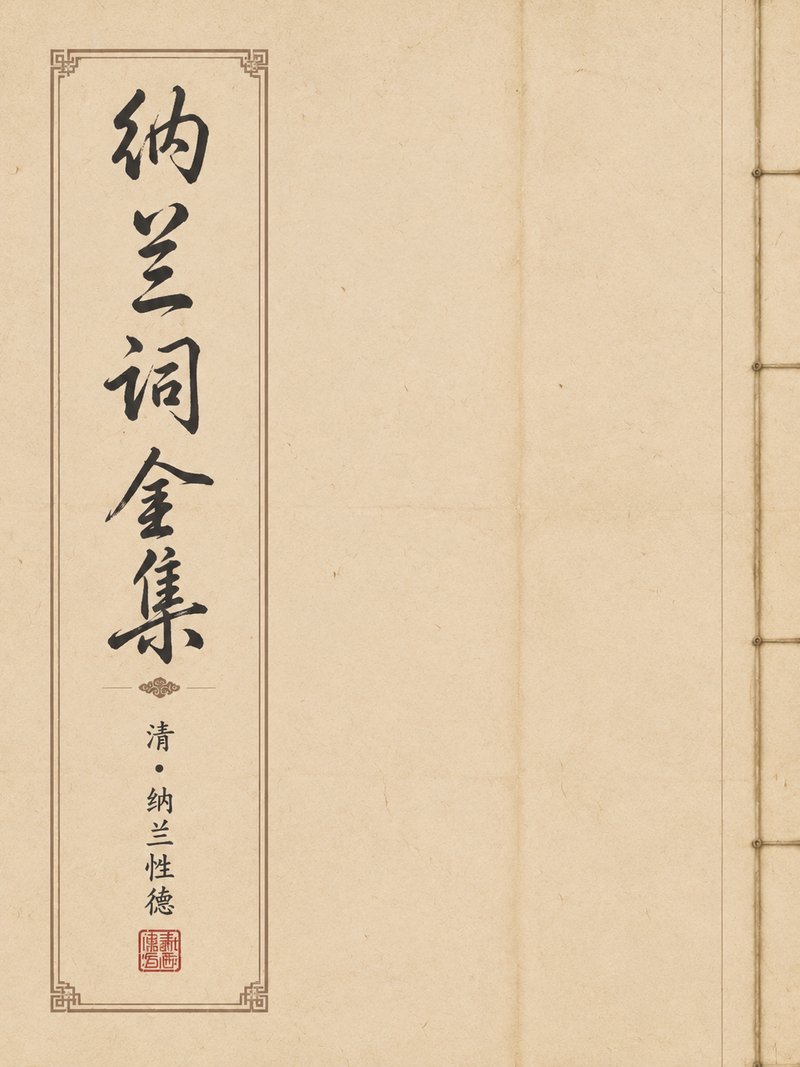 纳兰词全集
清·纳兰性德